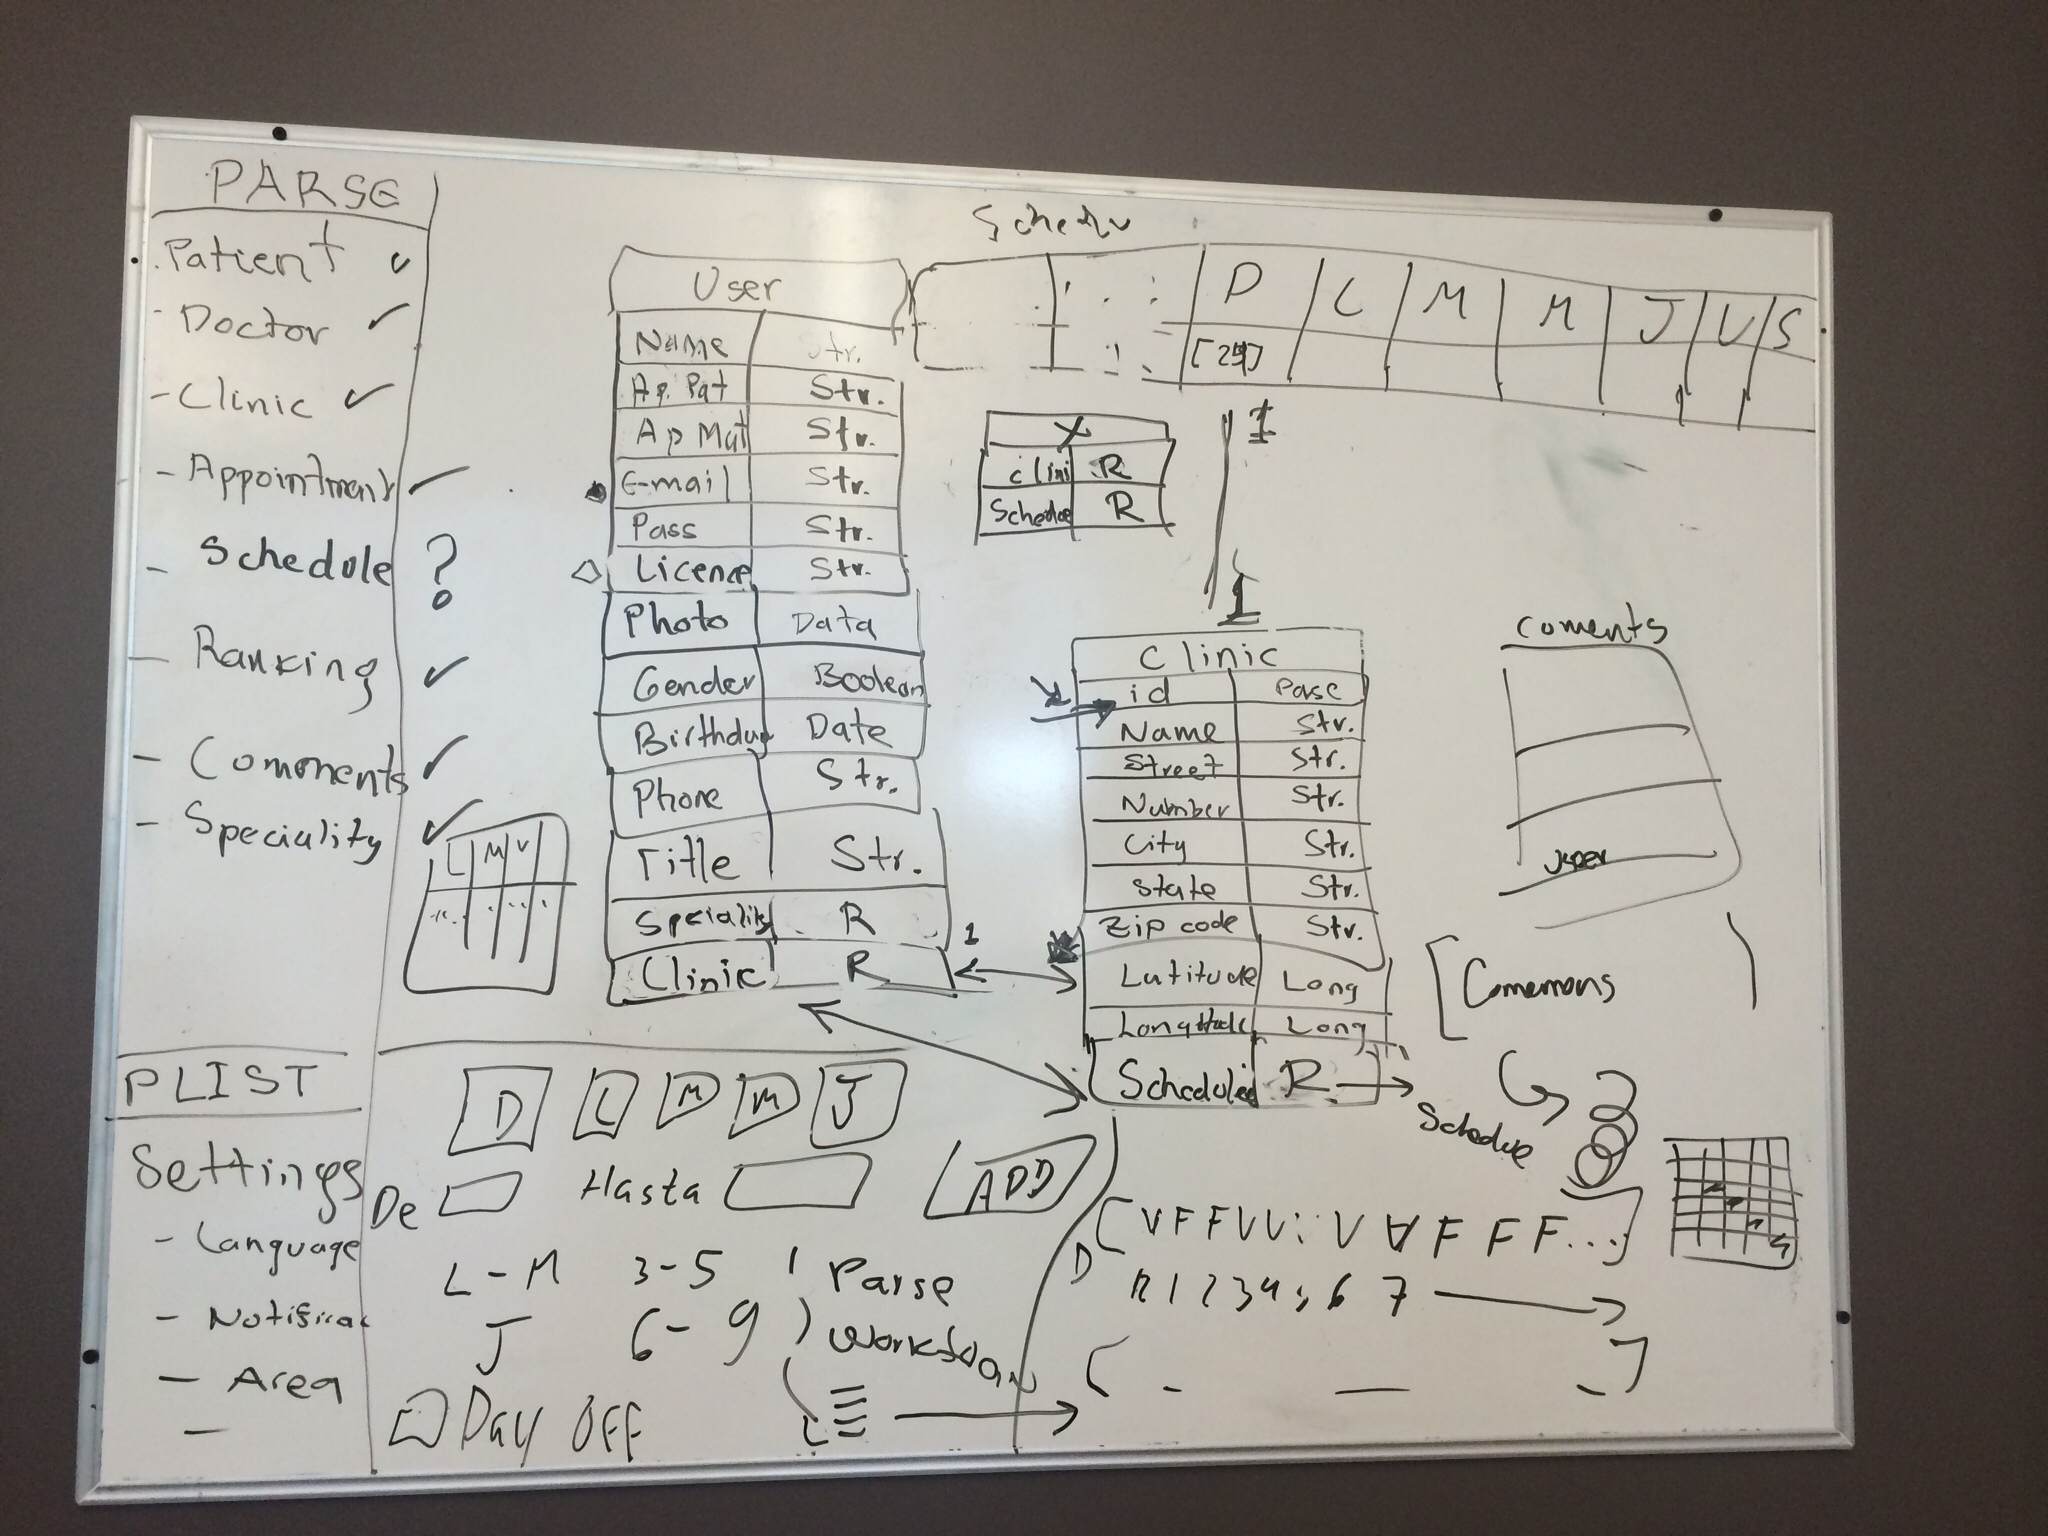 PARSE
Patient ✓
- Doctor ✓
- Clinic ✓
- Appointment ✓
- Schedule ?
- Ranking ✓
- Comments ✓
- Speciality ✓
L M V
PLIST
Settings
- Language
- Area
-
User
Name Str.
Ap. Pat Str.
Ap Mat Str.
E-mail Str.
Pass Str.
Licence Str.
Photo Data
Gender Boolean
Birthday Date
Phone Str.
Title Str.
Speciality R
Clinic R
1
Schedu
D L M M J V S
[24]
X
Clini R
Schedue R
1
1
Clinic
id Parse
Name Str.
Street Str.
Number Str.
City Str.
State Str.
Zip code Str.
Latitude Long
Longitude Long
Schedule R
Schedue
Coments
User
[Comemons
D L M M J
De Hasta ADD
L-M 3-5 Parse
J 6-9
Day OFF
[V F F V V : : V V F F F...]
D 12 1 2 3 4 5 6 7
[ - — - ]